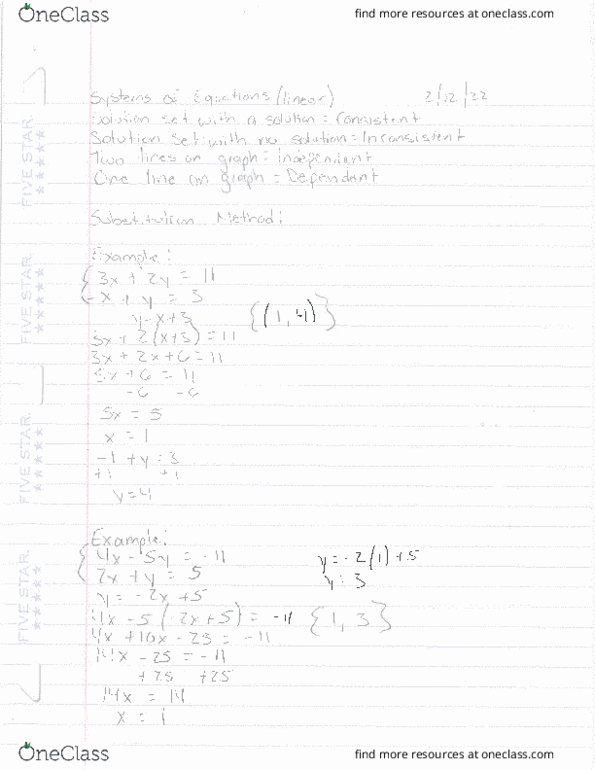 OneClass
find more resources at oneclass.com
Systems of Equations (linear) 2/12/22
Solution set with a solution = Consistent
Solution set with no solution = Inconsistent
Two lines on graph = independent
One line on graph = Dependent
Substitution Method:
Example:
3x + 2y = 11
-x + y = 3
y = x + 3 {(1, 4)}
3x + 2(x+3) = 11
3x + 2x + 6 = 11
5x + 6 = 11
-6 -6
5x = 5
x = 1
-1 + y = 3
+1 +1
y = 4
Example:
4x - 5y = -11 y = -2(1) + 5
2x + y = 5 y = 3
y = -2x + 5
4x - 5(-2x + 5) = -11 {1, 3}
4x + 10x - 25 = -11
14x - 25 = -11
+25 +25
14x = 14
x = 1
FIVE STAR
FIVE STAR
FIVE STAR
FIVE STAR
OneClass
find more resources at oneclass.com